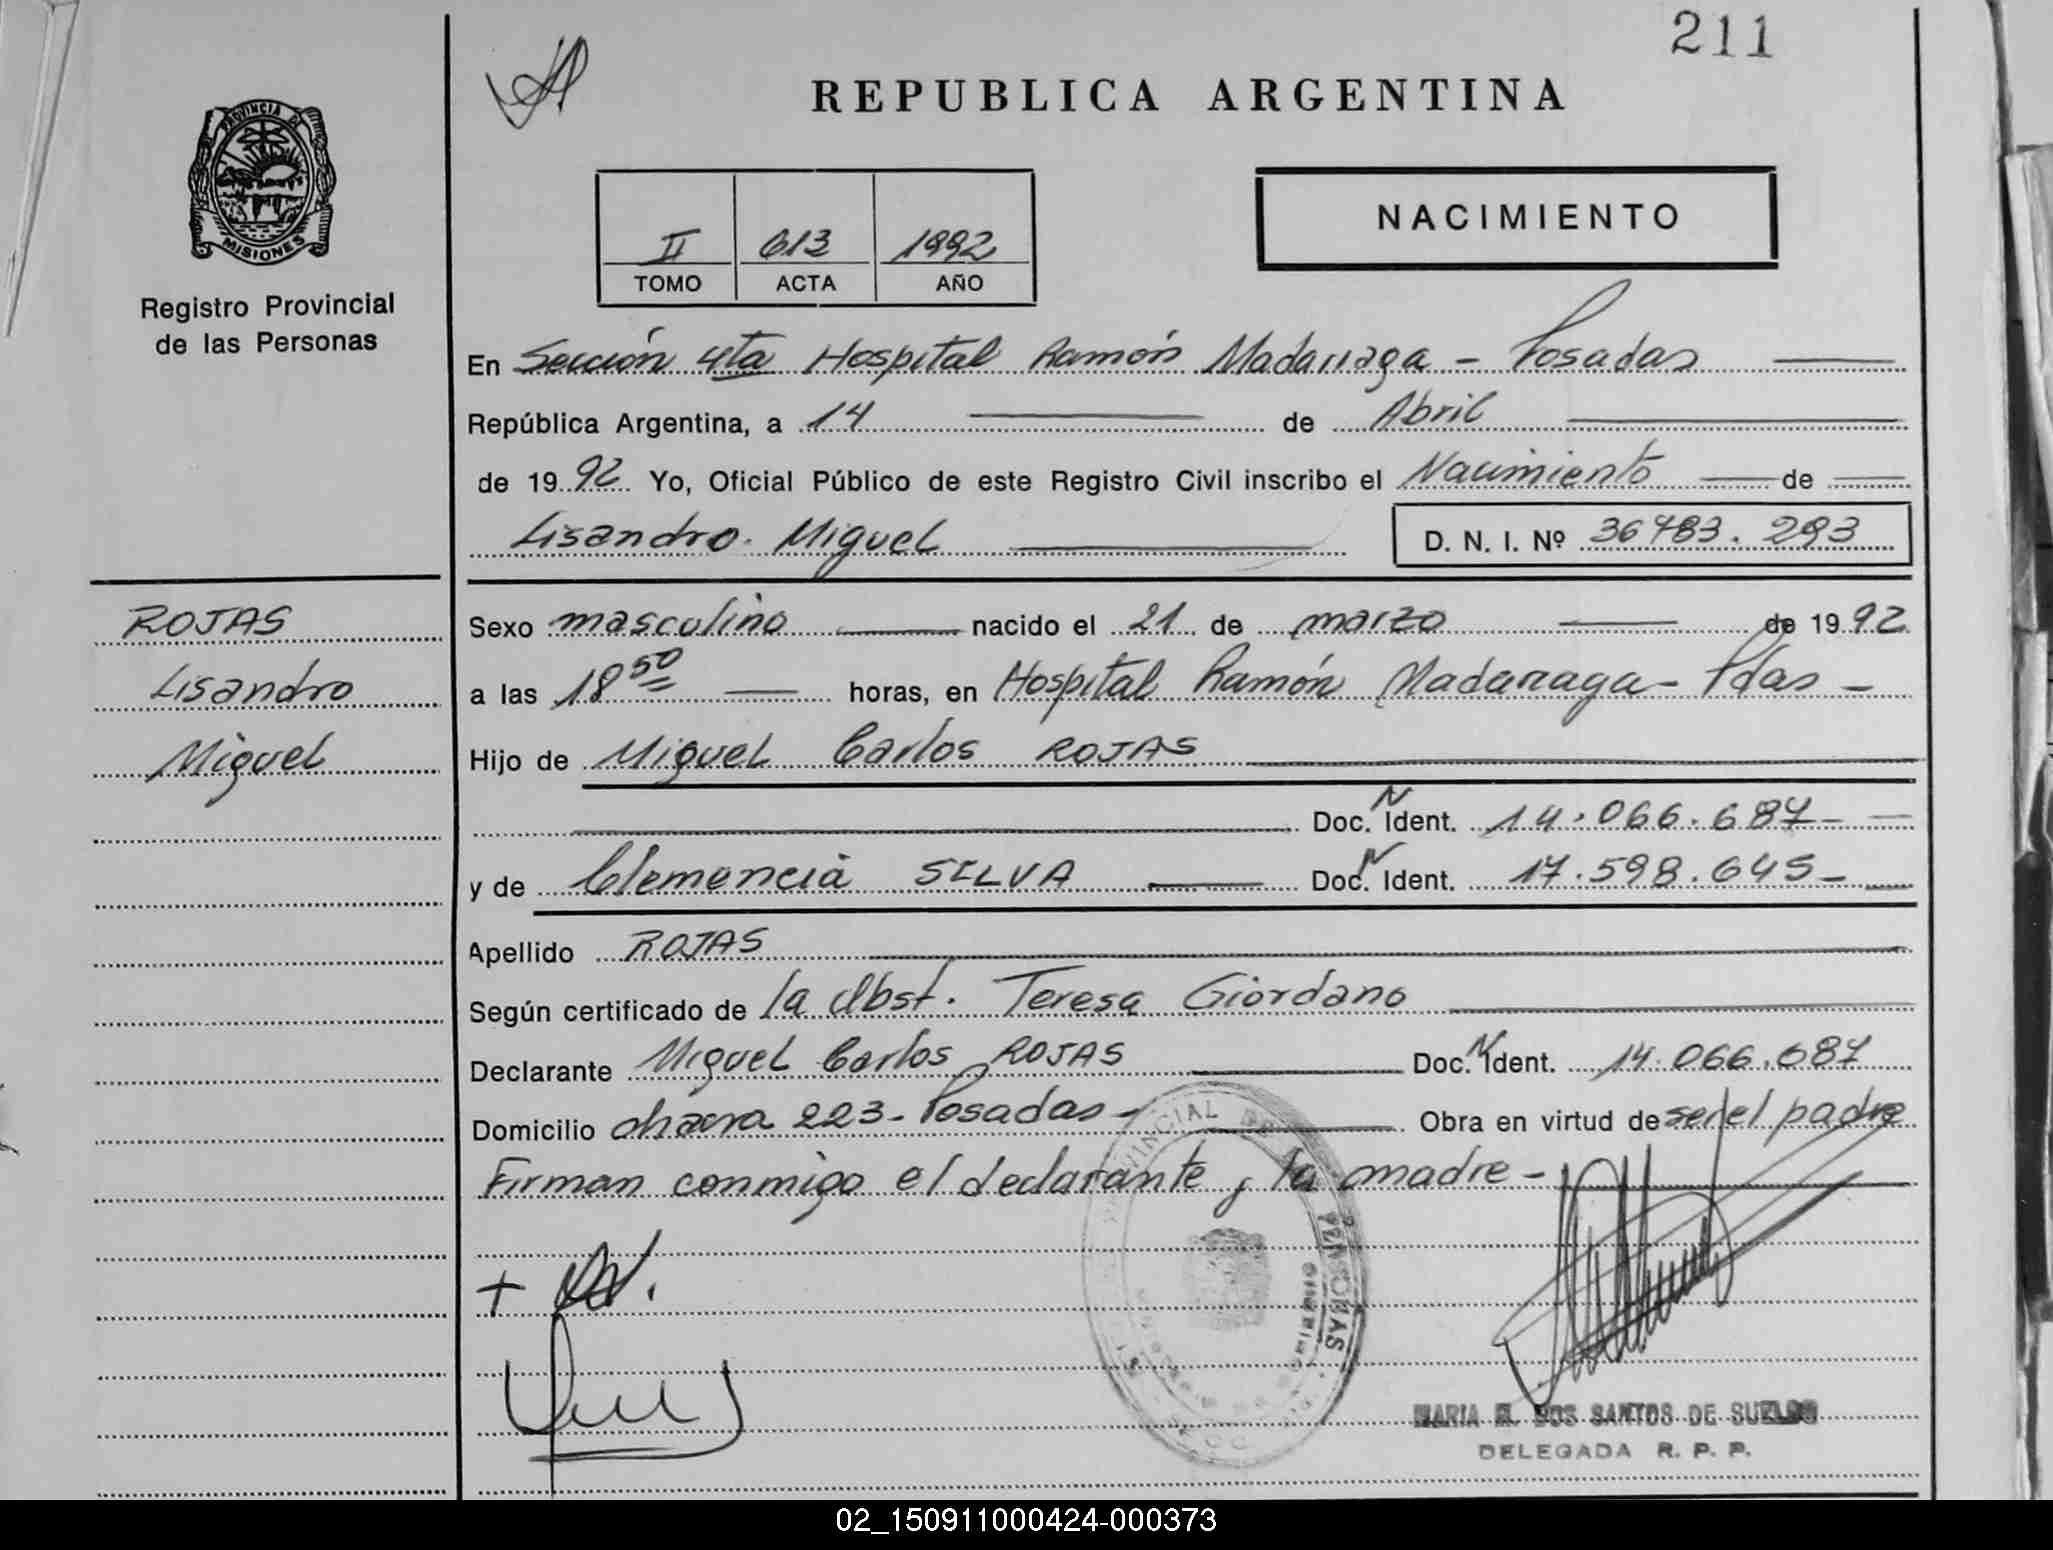 211
REPUBLICA ARGENTINA
PROVINCIA DE
MISIONES
Registro Provincial
de las Personas
II 613 1992
TOMO ACTA AÑO
NACIMIENTO
En Sección 4ta Hospital Ramón Madariaga - Posadas
República Argentina, a 14 de Abril
de 1992 Yo, Oficial Público de este Registro Civil inscribo el Nacimiento de
Lisandro Miguel D. N. I. Nº 36483.293
ROJAS
Lisandro
Miguel
Sexo masculino nacido el 21 de marzo de 1992
a las 18 50 horas, en Hospital Ramón Madariaga - Pdas -
Hijo de Miguel Carlos ROJAS
Doc. N Ident. 14.066.687 -
y de Clemencia SILVA Doc. N Ident. 17.598.645 -
Apellido ROJAS
Según certificado de la Obst. Teresa Giordano
Declarante Miguel Carlos ROJAS Doc. N Ident. 14.066.687
Domicilio chacra 223 - Posadas - Obra en virtud de ser el padre
Firman conmigo el declarante y la madre -
MARIA DOS SANTOS DE
DELEGADA R. P. P.
02_150911000424-000373